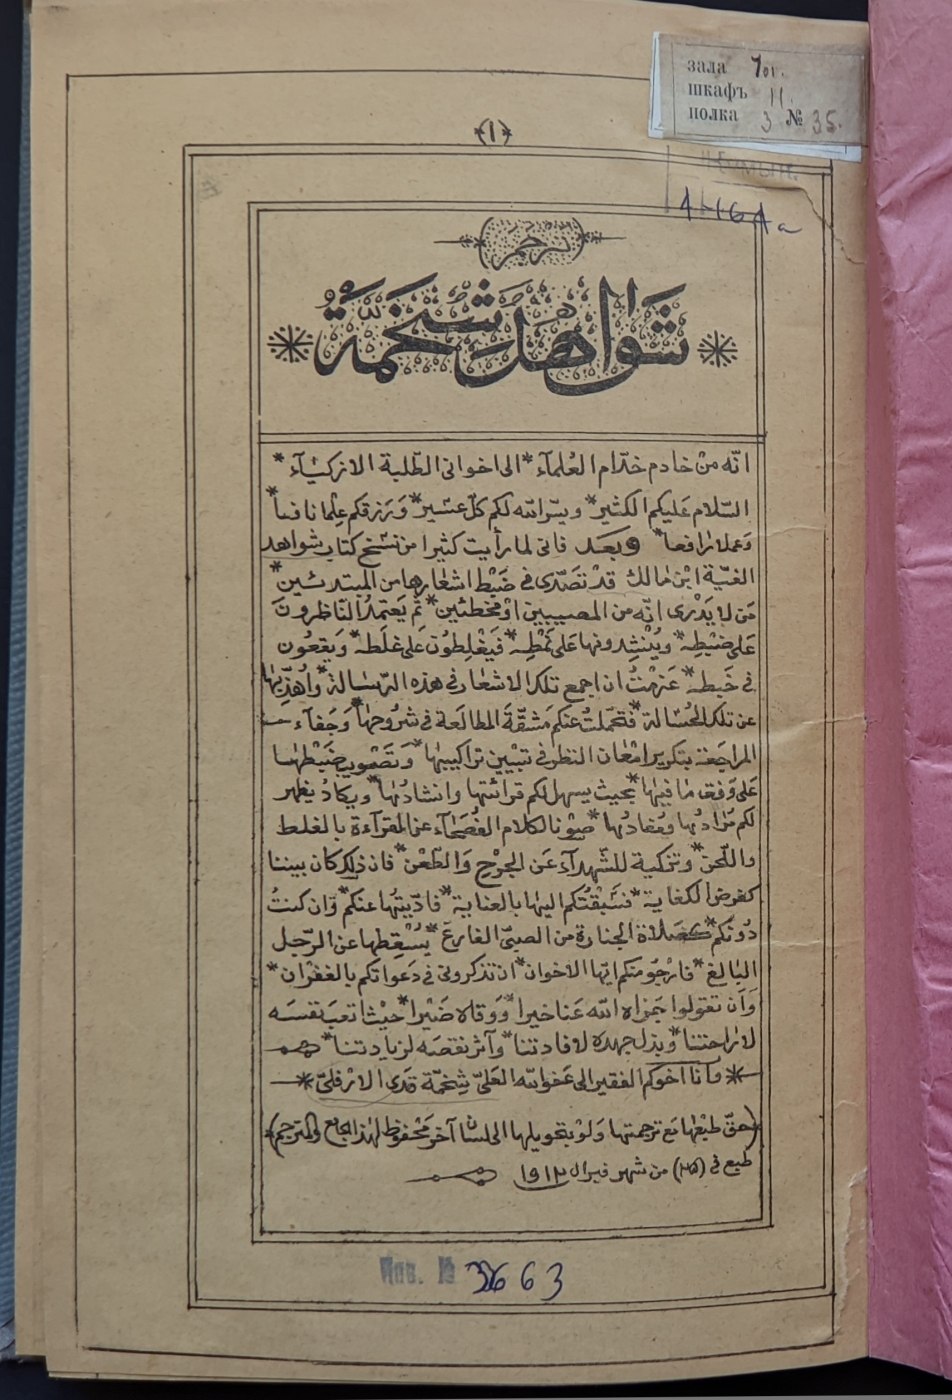 зала 7от.
шкафъ 11.
полка 3 № 35.
(١)
4-164а
ترجمة
شواهد شخمة
انّه من خادم خدّام العُلمآء * الى اخوانى الطّلبة الازكيآء *
السّلام عَليكم الكثير * ويسّر الله لكم كلّ عسير * وَرَزقكم عِلما نافعاً *
وَعملا رافعا * وبعد فانى لما رأيت كثيرا من نسَخ كتاب شواهد
الفيّة ابْن مالك قدْ تصَدّى فى ضَبْط اشعارها من المبتدئين *
مَن لا يَدْرى انّه من المصيبين اوْ مخطئين * ثمّ يَعتمدُ النّاظرونَ
عَلى ضبْطِهِ * ويُنْشِدونها عَلى نمْطِهِ * فَيَغْلِطُون عَلى غلَطه * وَيَقعُون
فى خَبطه * عَزمْتُ ان اجمع تلك الاشعار فى هذه الرّسالة * وَاُهذّبها
عن تلك الحُسَالة * فتحمّلتُ عنكم مَشقّةَ المطالَعة فى شرُوحها * وَجَفآء
المراجَعة بتكرير امْعان النظر فى تبْيين تراكيبها * وَتَصْويب ضَبْطها
عَلى وَفق مَا فيها * بحيث يسهل لكم قرائتها وانشادُها * ويكادُ يظهر
لكم مُرَادُها ومُفادُها * صوْنا لكلام الفُصَحآء عن القرآءة بالغلط
واللّحن * وتزكية للشّهدآء عَن الجرْح وَالطّعْن * فان ذلك كان بيننا
كفرض الكفاية * فسَبَقْتُكم اليها بالعناية * فادّيتُها عنكم * وَان كنتُ
دُونَكم * كصَلاة الجنازة من الصبىّ الفارغ * يُسْقِطها عن الرّجل
البَالغ * فارْجُو منكم ايّها الاخوان * ان تذكرونى فى دَعواتكم بالغفْران *
وَاَن تقولوا جَزاه الله عَنا خيرا * وَوَقاه ضَيْرا * حيْث اتعبَ نفسَه
لارَاحتنا * وَبذل جهده لافادتنا * وآثر نقصَه لزيادتنا *
* وَانا اخوكم الفقير الى عَفو الله العَلىّ شِخمّة قدَى الارْفلىّ *
(حقّ طبْعها مَع ترجمتها وَلوْ بتحويلها الى لسان آخر مَحْفوظ لهذا الجَامع والمترجم)
طبع فى من شهر فبرال ١٩١٢
Инв. № 3663